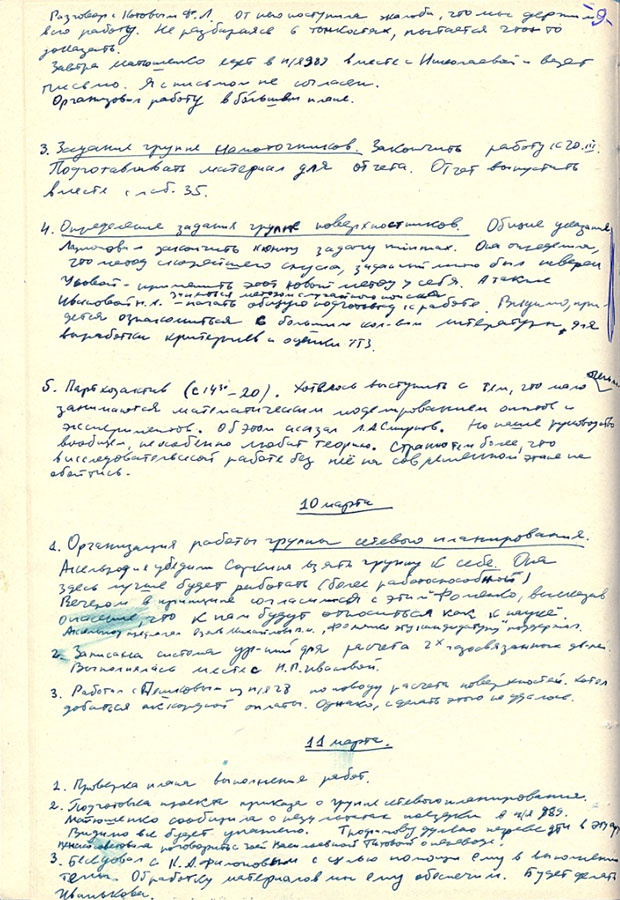 -9-
Разговор с Котовым Ф.Л. От него поступила жалоба, что мы держим
его работу. Не разбираясь в тонкостях, пытается что-то
доказать.
Завтра Матюшенко едет в п/я 989 вместе с Николаевой и везет
письмо. Я с письмом не согласен.
Организовал работу в большем плане.
3. Задание группе намоточников. Закончить работу к 20.III.
Подготавливать материал для отчета. Отчет выпустить
вместе с лаб. 35.
4. Определение задания группе поверхностников. Общие указания
закончить к концу задачу minmax. Она определила,
что метод скорейшего спуска, был неверен
применить этот новый метод у себя. А также
заняться методом случайного поиска
Ивановой Н.Л. - начать общую подготовку к работе. Видимо, при-
дется ознакомиться с большим кол-вом литературы, для
выработки критериев и оценки ТТЗ.
5. Партхозактив (с 14³⁰-20). Хотелось выступить с тем, что мало
занимаются математическим моделированием опытов и
экспериментов. Об этом сказал Л.А. Смирнов. Но наше руководство
вообще, не особенно любит теорию. Странно тем более, что
в исследовательской работе без неё на современном этапе не
обойтись.
10 марта
1. Организация работы группы сетевого планирования.
убедили Соркина взять группу к себе. Она
здесь лучше будет работать (более работоспособной)
Вечером в принципе согласился с этим Фоменко, высказав
опасение, что к нам будут относиться как к науке.
Фоменко эту кандидатуру поддержал.
2. Записана система ур-ний для расчета 2ˣ
Выполнялась вместе с Н.П. Ивановой.
3. Работа с из п/я 28 по поводу расчета поверхностей. Хотел
добиться аккордной оплаты. Однако, сделать этого не удалось.
11 марта.
1. Проверка плана выполнения работ.
2. Подготовка проекта приказа о группе сетевого планирования.
Матюшенко сообщила о результатах поездки в п/я 989.
Видимо все будет улажено. перевести в эту гр.
поговорить с о переводе.
3. Беседовал с К.А. Филоновым с целью помощи ему в выполнении
темы. Обработку материалов мы ему обеспечим. Будет делать
Иванькова.